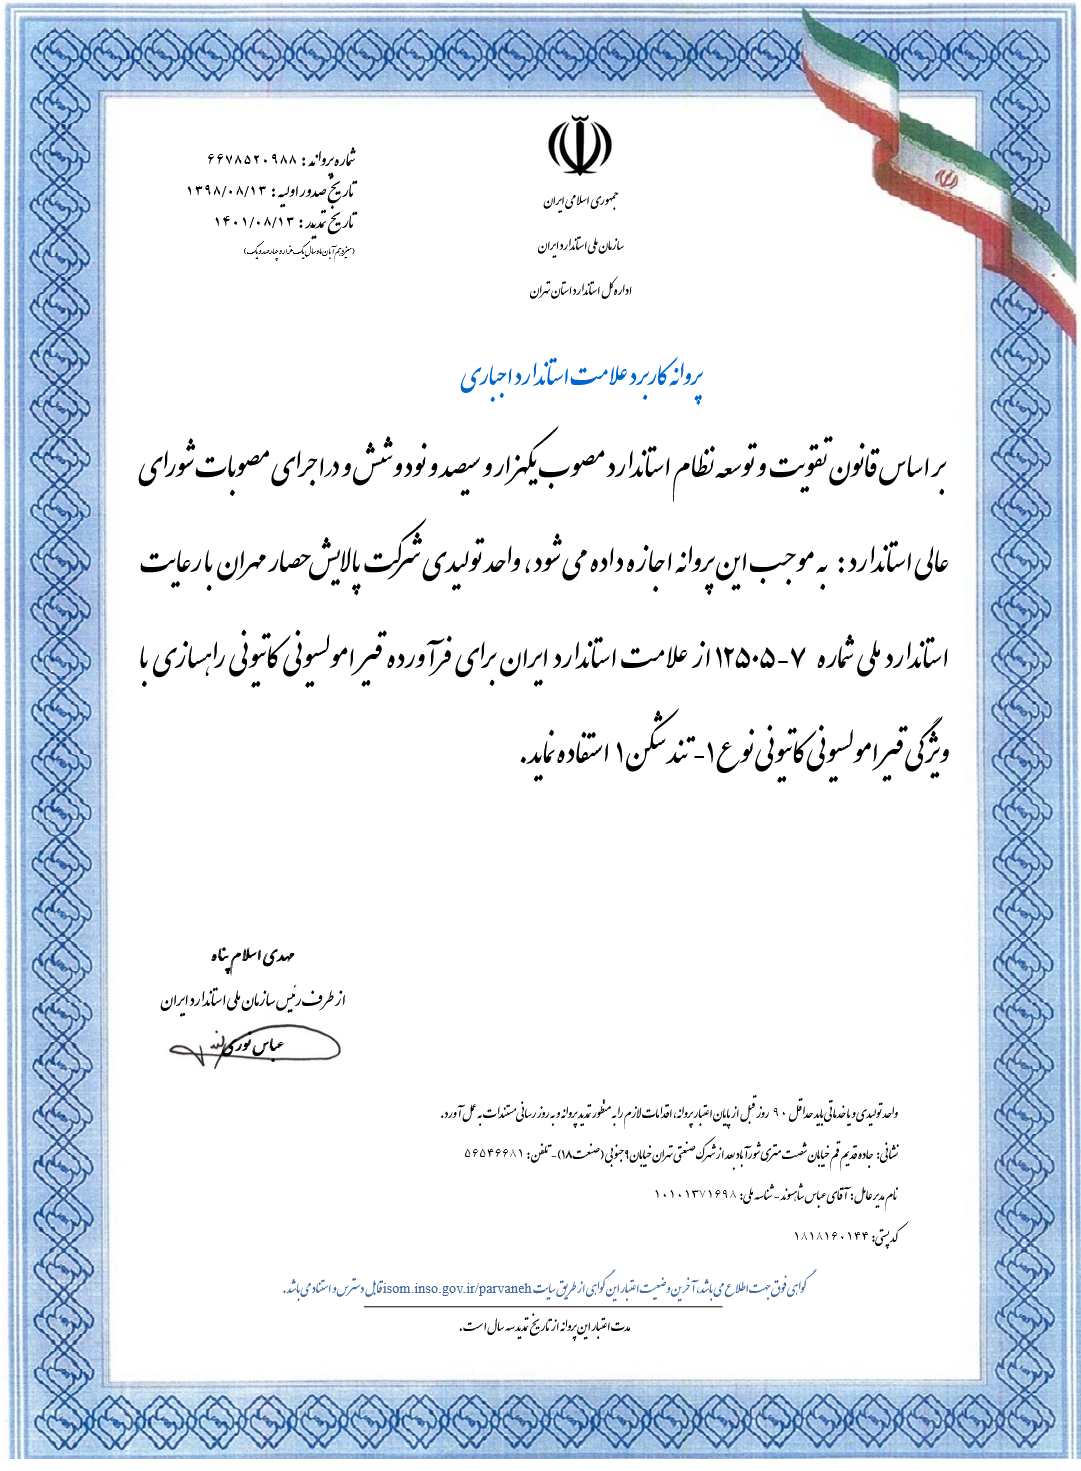 جمهوری اسلامی ایران
سازمان ملی استاندارد ایران
اداره کل استاندارد استان تهران
شماره پروانه : ۶۶۷۸۵۲۰۹۸۸
تاریخ صدور اولیه : ۱۳۹۸/۰۸/۱۳
تاریخ تمدید : ۱۴۰۱/۰۸/۱۳
(سیزدهم آبان ماه سال یک هزار و چهارصد و یک)
پروانه کاربرد علامت استاندارد اجباری
بر اساس قانون تقویت و توسعه نظام استاندارد مصوب یکهزار و سیصد و نود و شش و در اجرای مصوبات شورای
عالی استاندارد : به موجب این پروانه اجازه داده می شود، واحد تولیدی شرکت پالایش حصار مهران با رعایت
استاندارد ملی شماره ۷-۱۲۵۰۵ از علامت استاندارد ایران برای فرآورده قیر امولسیونی کاتیونی راهسازی با
ویژگی قیر امولسیونی کاتیونی نوع ۱- تند شکن ۱ استفاده نماید.
مهدی اسلام پناه
از طرف رئیس سازمان ملی استاندارد ایران
عباس نوری
واحد تولیدی و یا خدماتی باید حداقل ۹۰ روز قبل از پایان اعتبار پروانه، اقدامات لازم را به منظور تمدید پروانه و به روز رسانی مستندات به عمل آورد.
نشانی: جاده قدیم قم خیابان شصت متری شورآباد بعد از شهرک صنعتی تهران خیابان ۹ جنوبی (صنعت ۱۸) - تلفن: ۵۶۵۴۶۶۸۱
نام مدیر عامل : آقای عباس شاهسوند - شناسه ملی: ۱۰۱۰۱۳۷۱۶۹۸
کد پستی: ۱۸۱۸۱۶۰۱۴۴
گواهی فوق جهت اطلاع می باشد، آخرین وضعیت اعتبار این گواهی از طریق سایت isom.inso.gov.ir/parvaneh قابل دسترس و استناد می باشد.
مدت اعتبار این پروانه از تاریخ تمدید سه سال است.